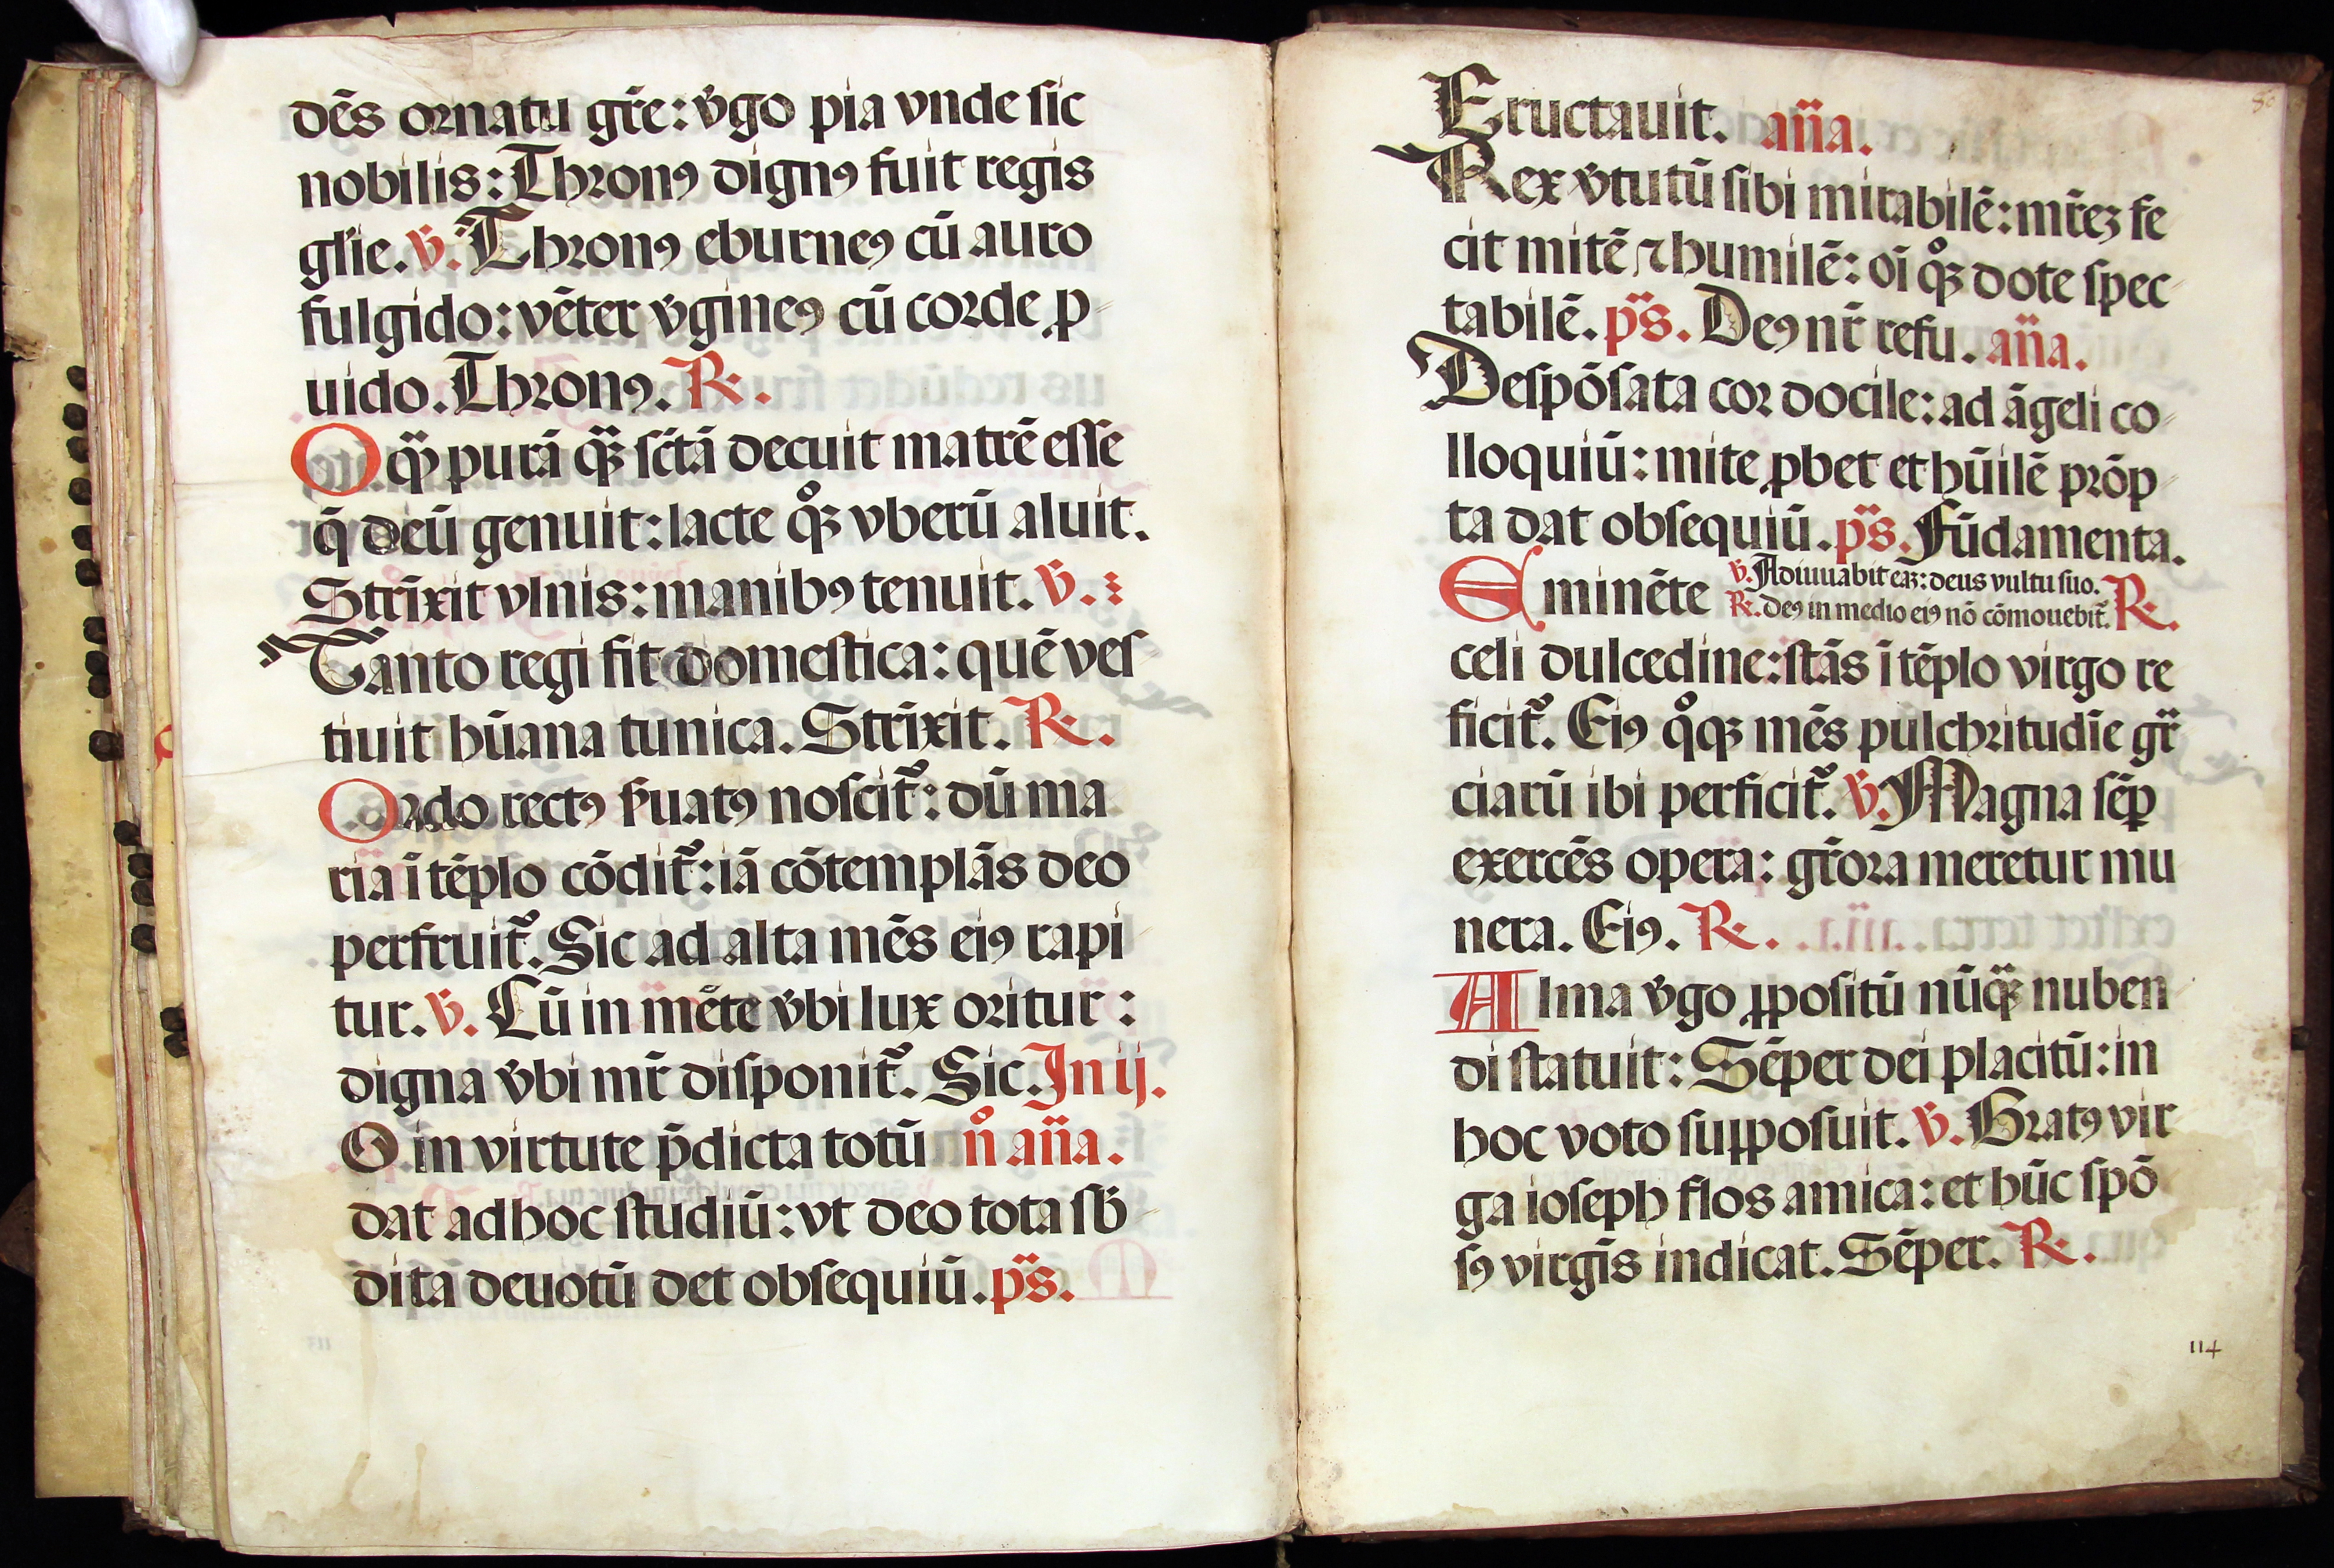 dēs ornatu gr̄e: v̄go pia vnde sic
nobilis: Thronꝯ dignꝯ fuit regis
gl̄ie. v̄. Thronꝯ eburneꝯ cū auro
fulgido: vēter v̄gineꝯ cū corde ꝓ
uido. Thronꝯ. ℞.
O qͣꝫ purā qͣꝫ sc̄tā decuit matrē esse
q̄ deū genuit: lacte qͦꝫ vberū aluit.
Strīxit vlnis: manibꝯ tenuit. v̄.
Tanto regi fit domestica: quē ves
tiuit hūana tunica. Strīxit. ℞.
Ordo rectꝯ ẜuatꝯ noscit᷑: dū ma
ria ī tēplo cōdit᷑: iā cōtemplās deo
perfruit᷑. Sic ad alta mēs eiꝯ rapi
tur. v̄. Cū in mēte v̄bi lux oritur:
digna v̄bi mr̄ disponit᷑. Sic. In ij.
O in virtute p̄dicta totū nͦ an̄a.
dat ad hoc studiū: vt deo tota sb̄
dita deuotū det obsequiū. pͣs.
Eructauit. an̄a.
Rex v̄tutū sibi mirabilē: mr̄eꝫ fe
cit mitē ⁊ humilē: oī qͦꝫ dote spec
tabilē. pͣs. Deꝯ nr̄ refu. an̄a.
Despōsata cor docile: ad āgeli co
lloquiū: mite ꝓbet et hūilē prōp
ta dat obsequiū. pͣs. Fūdamenta.
v̄. Adiuuabit eaꝫ: deus vultu suo.
Eminēte ℞. deꝯ in medio eiꝯ nō cōmouebit᷑. ℞.
celi dulcedine: stās ī tēplo virgo re
ficit᷑. Eiꝯ qͦqꝫ mēs pulchritudīe gr̄
ciarū ibi perficit᷑. v̄. Magna sēp
exercēs opera: gr̄ora meretur mu
nera. Eiꝯ. ℞.
Alma v̄go ꝓpositū nūqͣꝫ nuben
di statuit: Sēper dei placitū: in
hoc voto suꝓposuit. v̄. Gratꝯ vir
ga ioseph flos amica: et hūc spō
sꝯ virgīs indicat. Sēper. ℞.
114